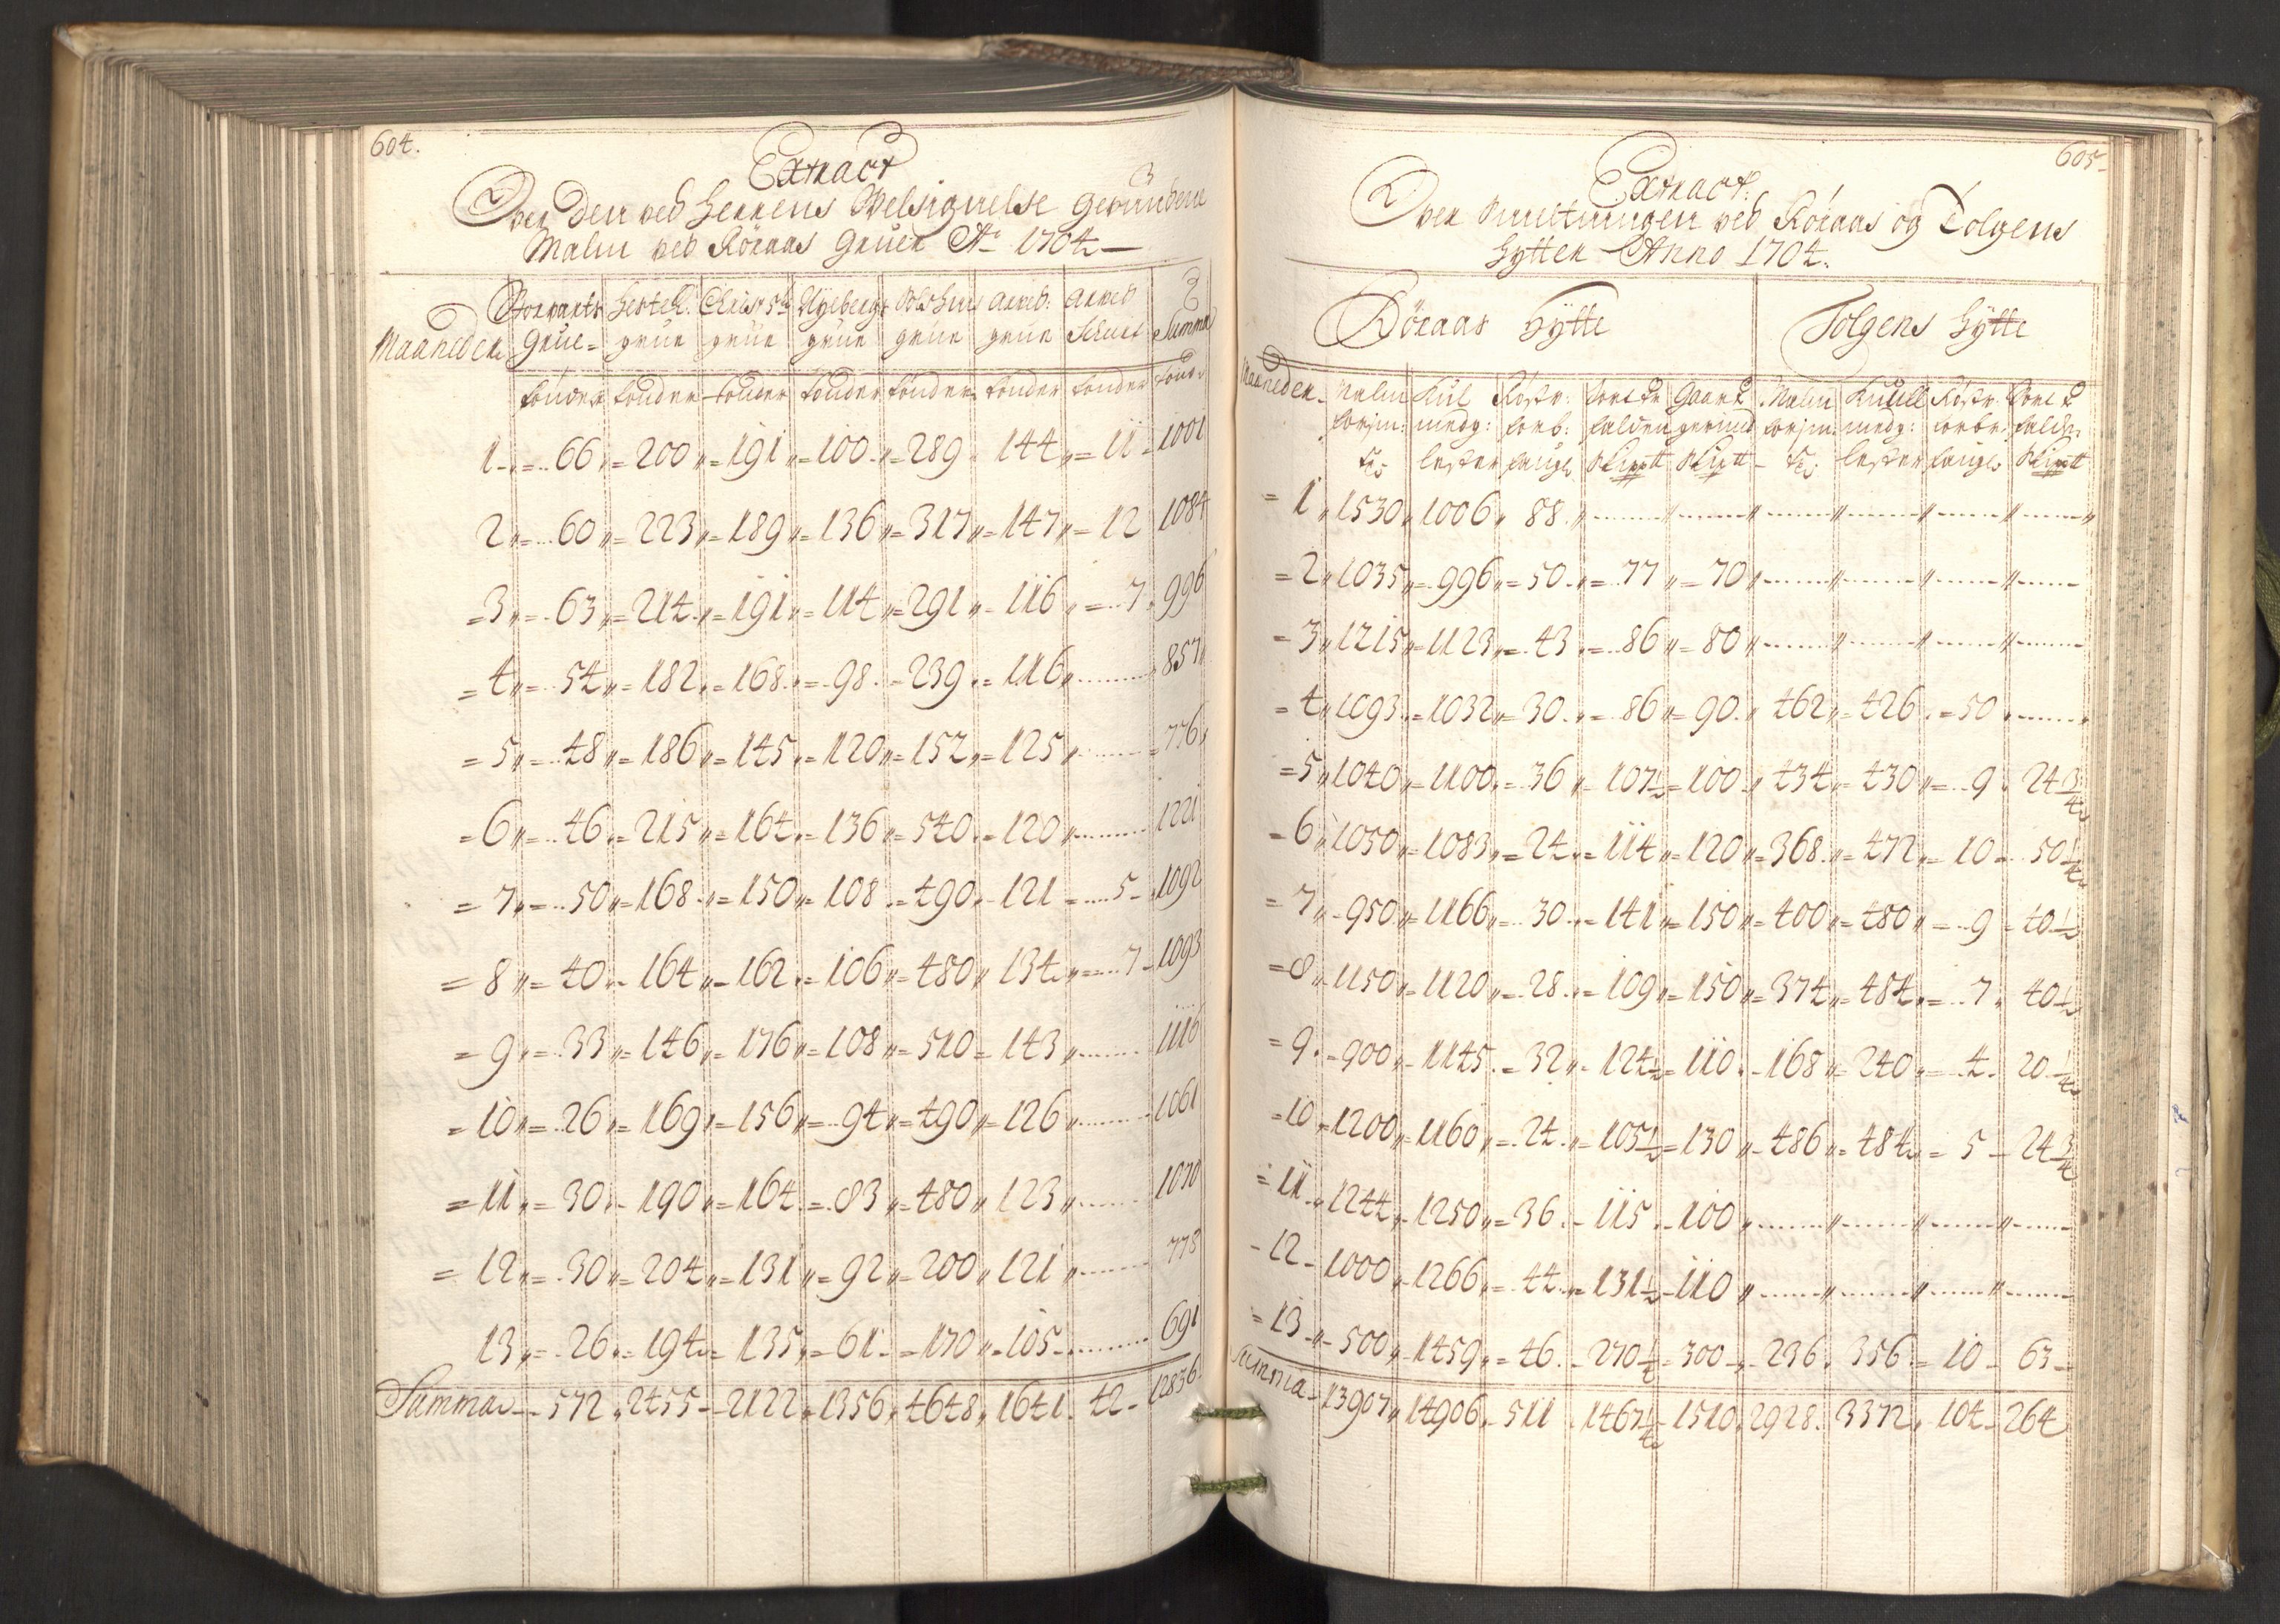 604.
Extract
Over Den ved Herrens Velsignelse gevundene
Malm ved Röraas Gruer Ao 1704
Maaneder Storvarts Grue Hestekl: grue Christ: 5ti grue Nÿebergs grue grue Arved: grue Arved Skurf Summa
tönder tönder tönder tönder tönder tönder tönder tönd:
1 66 200 191 100 289 144 11 1001
2 60 223 189 136 317 147 12 1084
3 63 214 191 114 291 116 7 996
4 54 182 168 98 239 116 857
5 48 186 145 120 152 125 776
6 46 215 164 136 540 120 1221
7 50 168 150 108 490 121 5 1092
8 40 164 162 106 480 134 7 1093
9 33 146 176 108 510 143 1116
10 26 169 156 94 490 126 1061
11 30 190 164 83 480 123 1070
12 30 204 131 92 200 121 778
13 26 194 135 61 170 105 691
Summa 572 2455 2122 1356 4648 1641 42 12836
605
Extract.
Over Smeltningen ved Röraas og Tolgens
Hytter Anno 1704.
Röraas Hÿtte Tolgens Hÿtte
Maaneder Malm Kul Röstv: Sort Gaark Malm Kuull Röstv: Sort
forsm: medg: forb: falden gevind forsm: medg: forbr: falden
tr lester faufn Skippt Skipt tr lester faufn Skippt
1 1530 1006 88
2 1035 996 50 77 70
3 1215 1123 43 86 80
4 1093 1032 30 86 90 462 426 50
5 1040 1100 36 107½ 100 434 430 9 24¾
6 1050 1083 24 114 120 368 472 10 50¼
7 950 1166 30 141 150 400 480 9 40½
8 1150 1120 28 109 150 374 484 7 40½
9 900 1145 32 124½ 110 168 240 4 20¼
10 1200 1160 24 105½ 130 486 484 5 24¾
11 1244 1250 36 115 100
12 1000 1266 44 131½ 110
13 500 1459 46 270¼ 300 236 356 10 63
Summa 13907 14906 511 1467¼ 1510 2928 3372 104 264